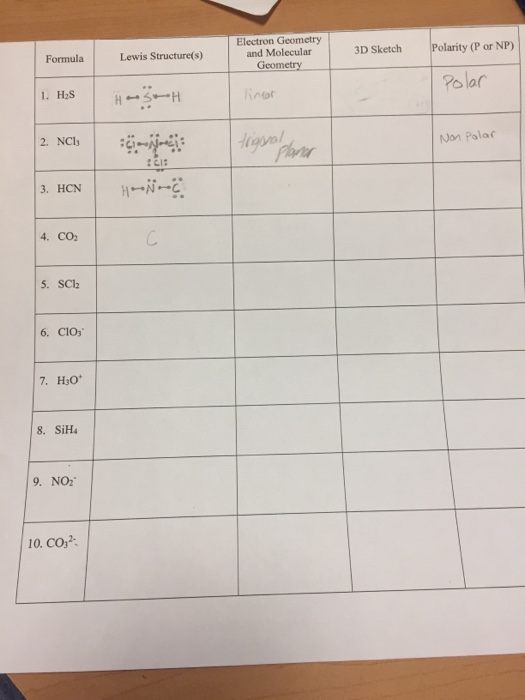 Formula
Lewis Structure(s)
Electron Geometry
and Molecular
Geometry
3D Sketch
Polarity (P or NP)
1. H₂S
H S H
linear
Polar
2. NCl₃
Cl N Cl
Cl
trigonal
planar
Non Polar
3. HCN
H N C
4. CO₂
C
5. SCl₂
6. ClO₃⁻
7. H₃O⁺
8. SiH₄
9. NO₂⁻
10. CO₃²⁻